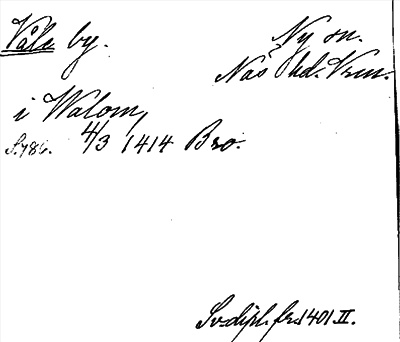 Våle by.
Ny sn.
Näs hd. Vrm.
i Walom,
S. 786. 4/3 1414 Bro.
Sv. dipl. fr. 1401 II.